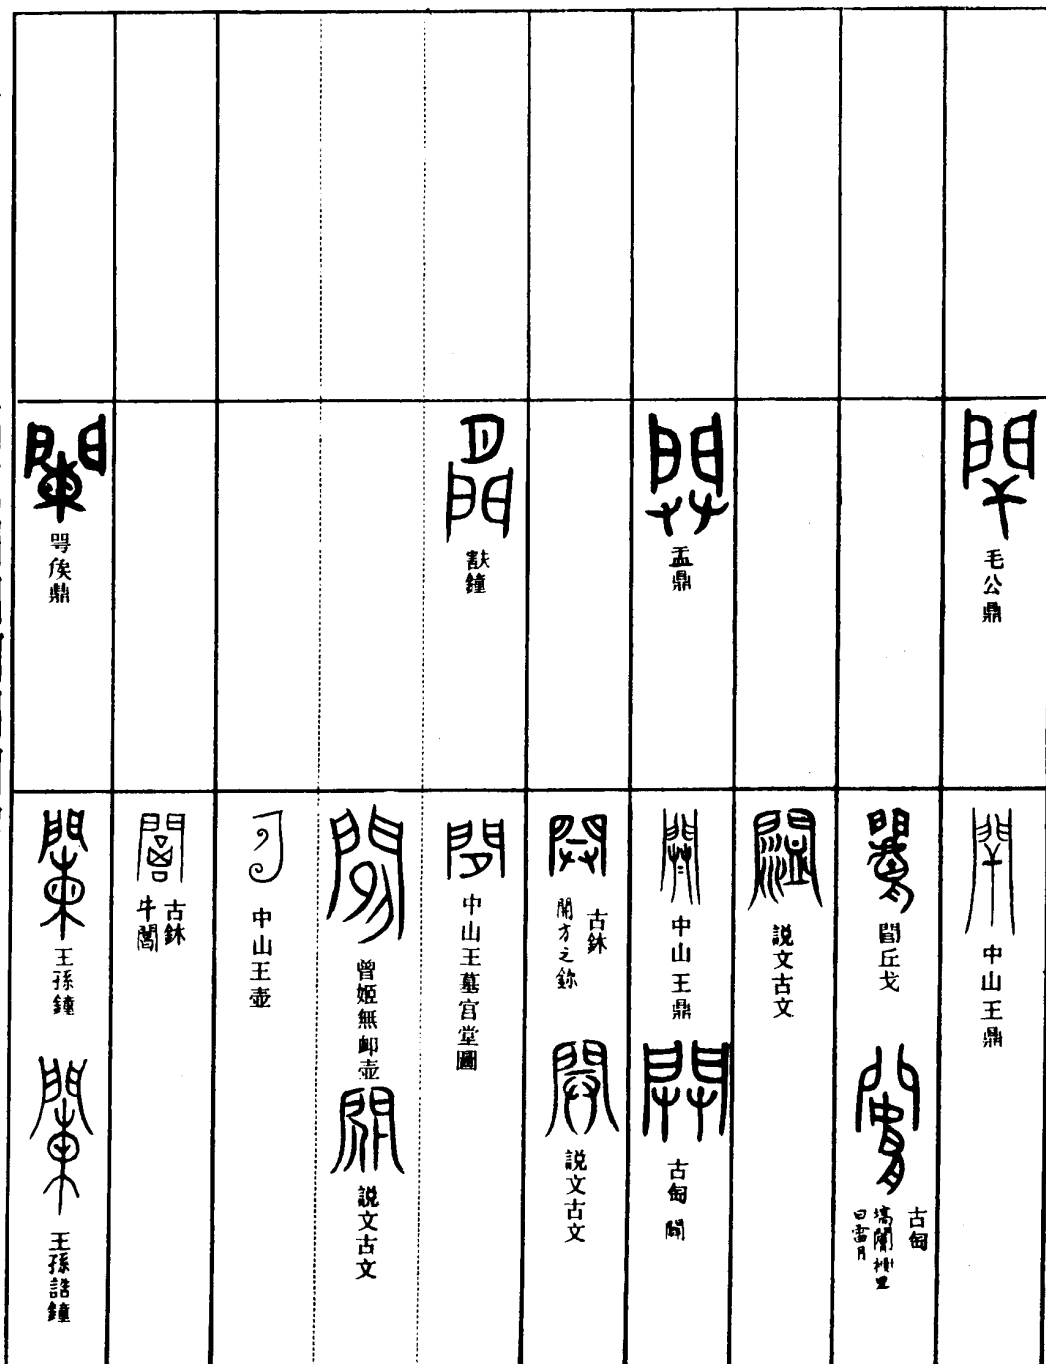 毛公鼎
中山王鼎
閭丘戈
古匋
說文古文
盂鼎
中山王鼎
古匋 開
古鉨
開方之鉨
說文古文
㝬鐘
中山王墓宮堂圖
曾姬無卹壺
說文古文
中山王壺
古鉨
牛閻
咢侯鼎
王孫鐘
王孫誥鐘